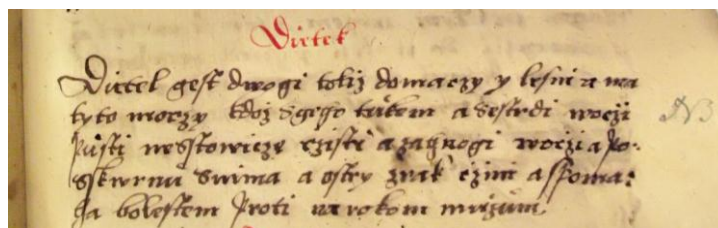 Dietek
Dietel gest dwogi totiz domaczy y lesni a ma
tyto moczy kdoz geho tukem a Sestrdi woczi
pusti nesstowicze czisti a zahogi woczi a po-
sskwrnu Snima a ostry zrak czini a spoma:
ga bolestem proti narokom
NB